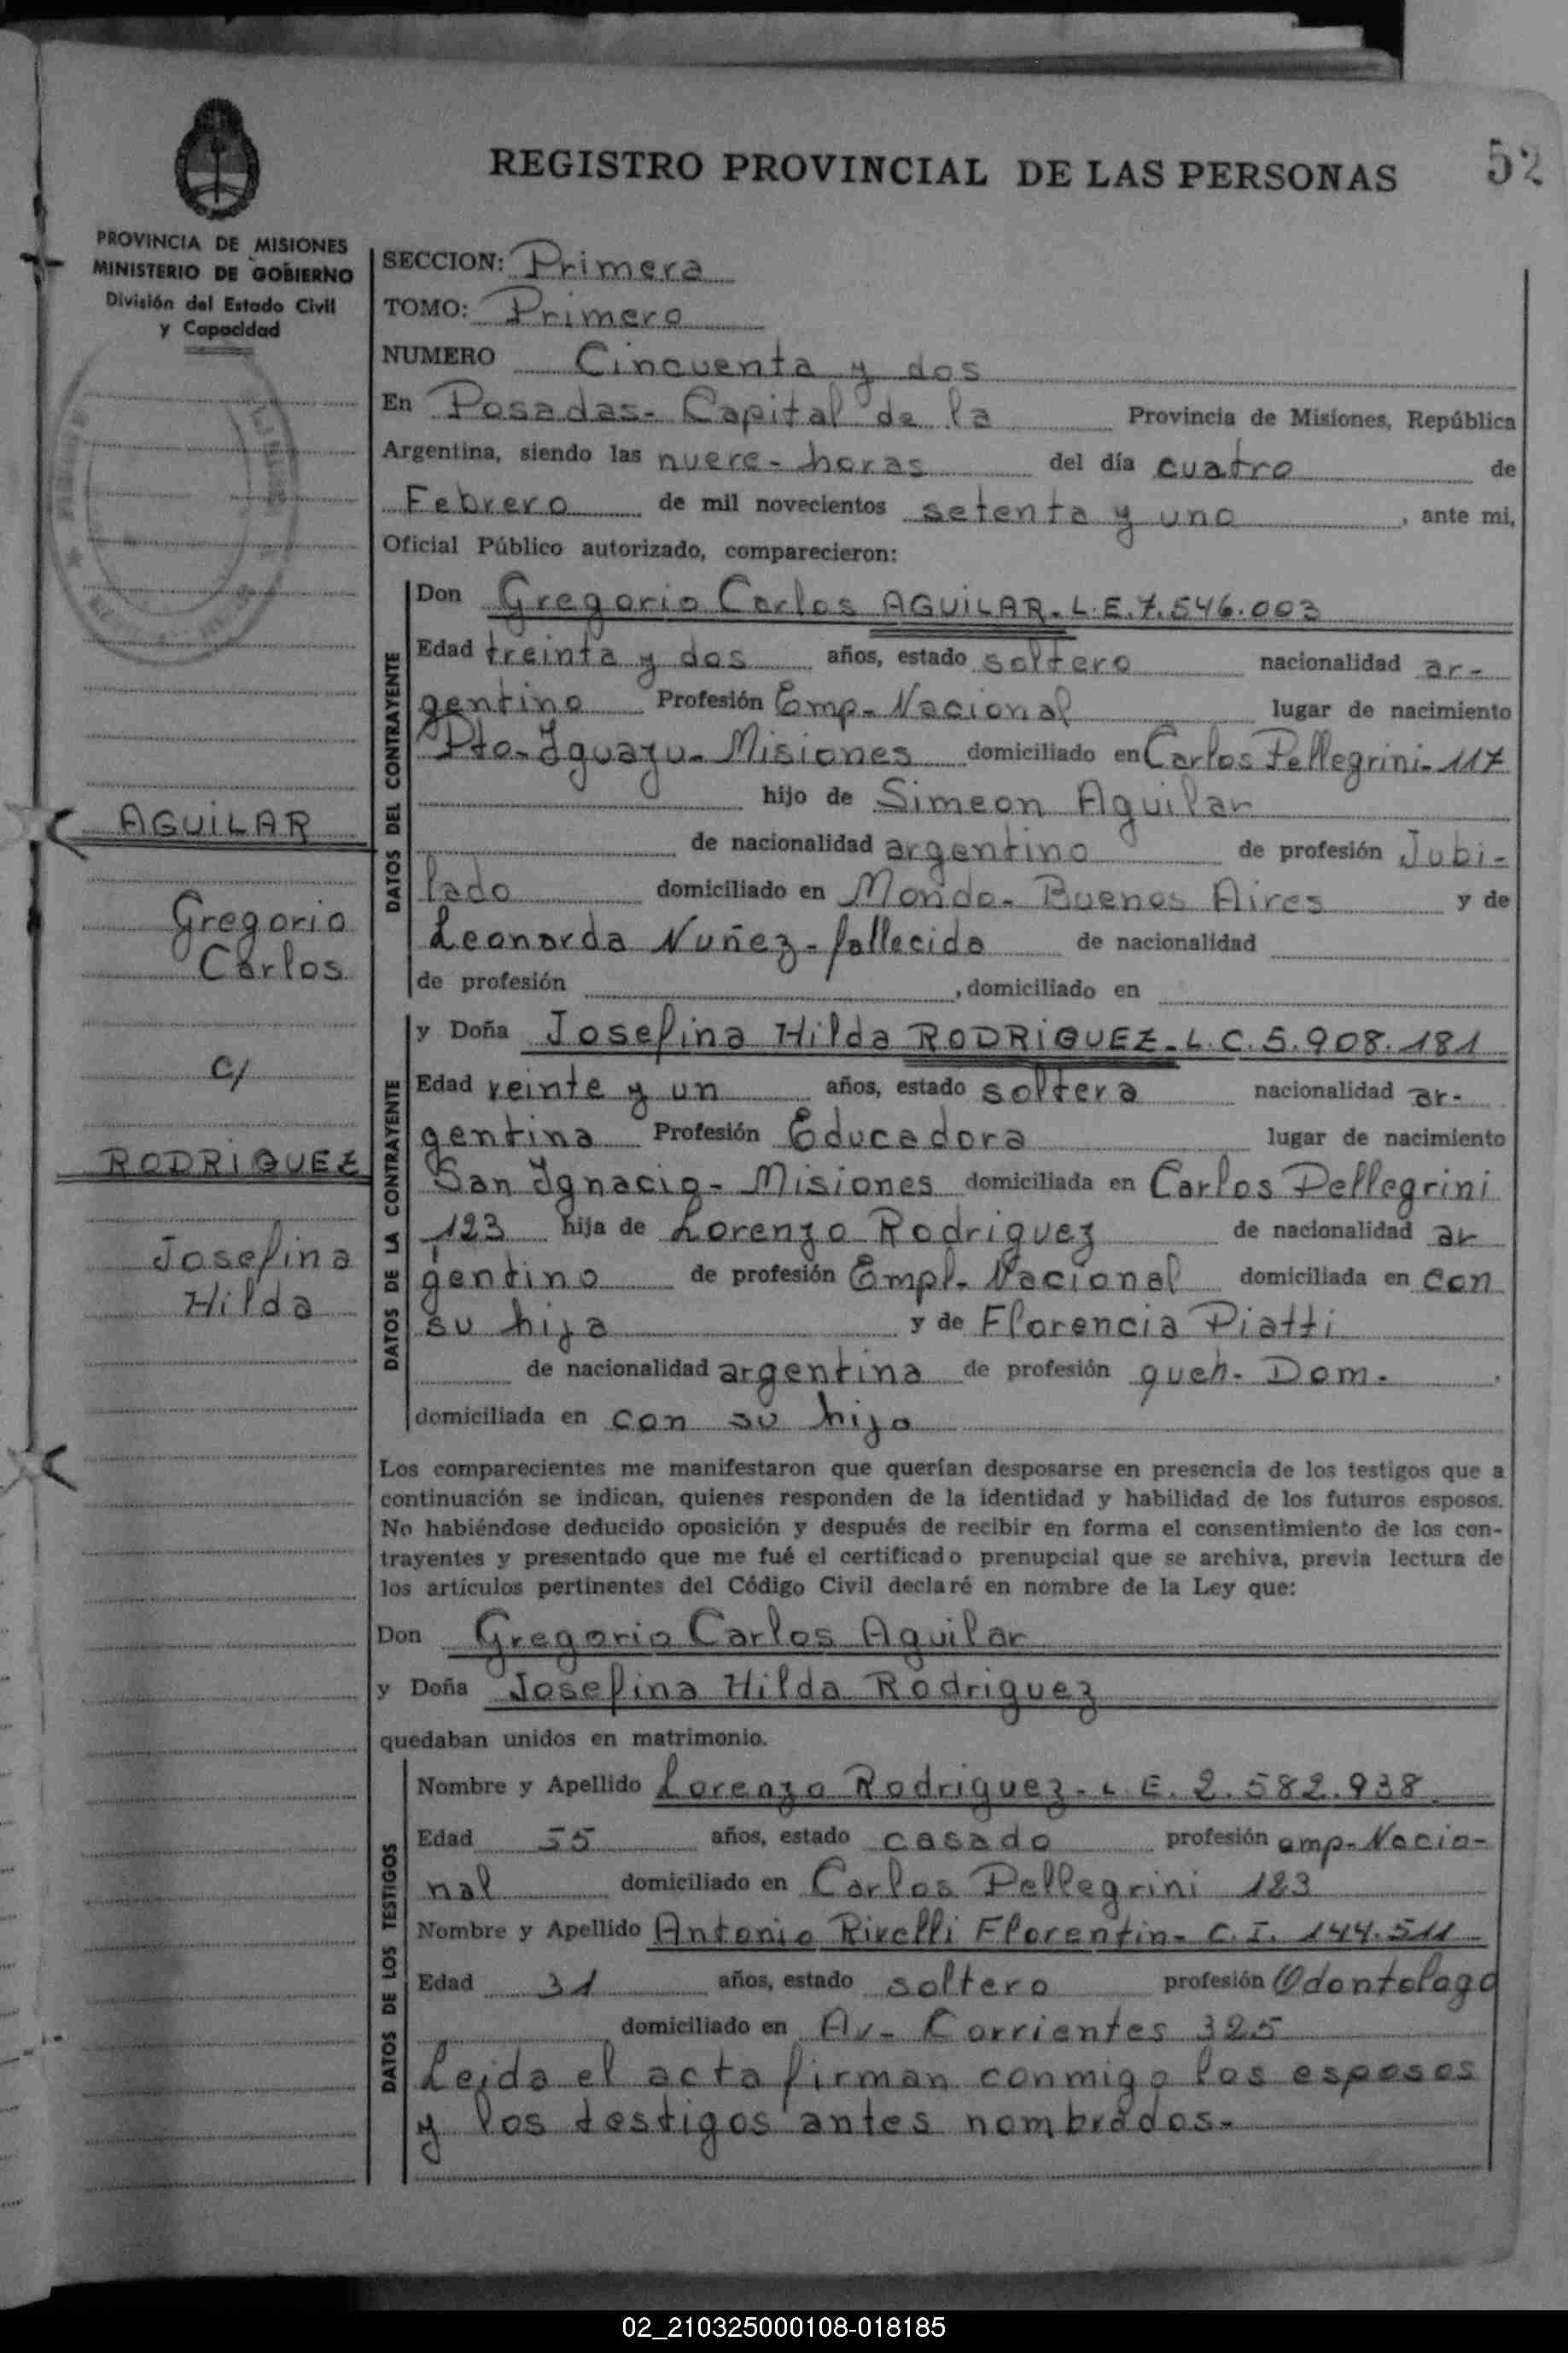 REGISTRO PROVINCIAL DE LAS PERSONAS
52
PROVINCIA DE MISIONES
MINISTERIO DE GOBIERNO
División del Estado Civil
y Capacidad
AGUILAR
Gregorio
Carlos
c/
RODRIGUEZ
Josefina
Hilda
SECCION: Primera
TOMO: Primero
NUMERO Cincuenta y dos
En Posadas- Capital de la Provincia de Misiones, República
Argentina, siendo las nueve- horas del día cuatro de
Febrero de mil novecientos setenta y uno, ante mi,
Oficial Público autorizado, comparecieron:
DATOS DEL CONTRAYENTE
Don Gregorio Carlos AGUILAR- L.E.7.546.003
Edad treinta y dos años, estado soltero nacionalidad ar-
gentino Profesión Emp- Nacional lugar de nacimiento
Pto- Iguazu- Misiones domiciliado en Carlos Pellegrini- 117
hijo de Simeon Aguilar
de nacionalidad argentino de profesión Jubi-
lado domiciliado en Buenos Aires y de
Leonarda Nuñez- fallecida de nacionalidad
de profesión , domiciliado en
DATOS DE LA CONTRAYENTE
y Doña Josefina Hilda RODRIGUEZ- L.C.5.908.181
Edad veinte y un años, estado soltera nacionalidad ar-
gentina Profesión Educadora lugar de nacimiento
San Ignacio- Misiones domiciliada en Carlos Pellegrini
123 hija de Lorenzo Rodriguez de nacionalidad ar
gentino de profesión Empl- Nacional domiciliada en con
su hija y de Florencia Piatti
de nacionalidad argentina de profesión queh- Dom.
domiciliada en con su hija
Los comparecientes me manifestaron que querían desposarse en presencia de los testigos que a
continuación se indican, quienes responden de la identidad y habilidad de los futuros esposos.
No habiéndose deducido oposición y después de recibir en forma el consentimiento de los con-
trayentes y presentado que me fué el certificado prenupcial que se archiva, previa lectura de
los artículos pertinentes del Código Civil declaré en nombre de la Ley que:
Don Gregorio Carlos Aguilar
y Doña Josefina Hilda Rodriguez
quedaban unidos en matrimonio.
DATOS DE LOS TESTIGOS
Nombre y Apellido Lorenzo Rodriguez- L.E. 2.582.938
Edad 55 años, estado casado profesión emp- Nacio-
nal domiciliado en Carlos Pellegrini 123
Nombre y Apellido Antonio Rivelli Florentin- C.I. 144.511
Edad 31 años, estado soltero profesión Odontologo
domiciliado en Av- Corrientes 325
Leida el acta firman conmigo los esposos
y los testigos antes nombrados-
02_210325000108-018185